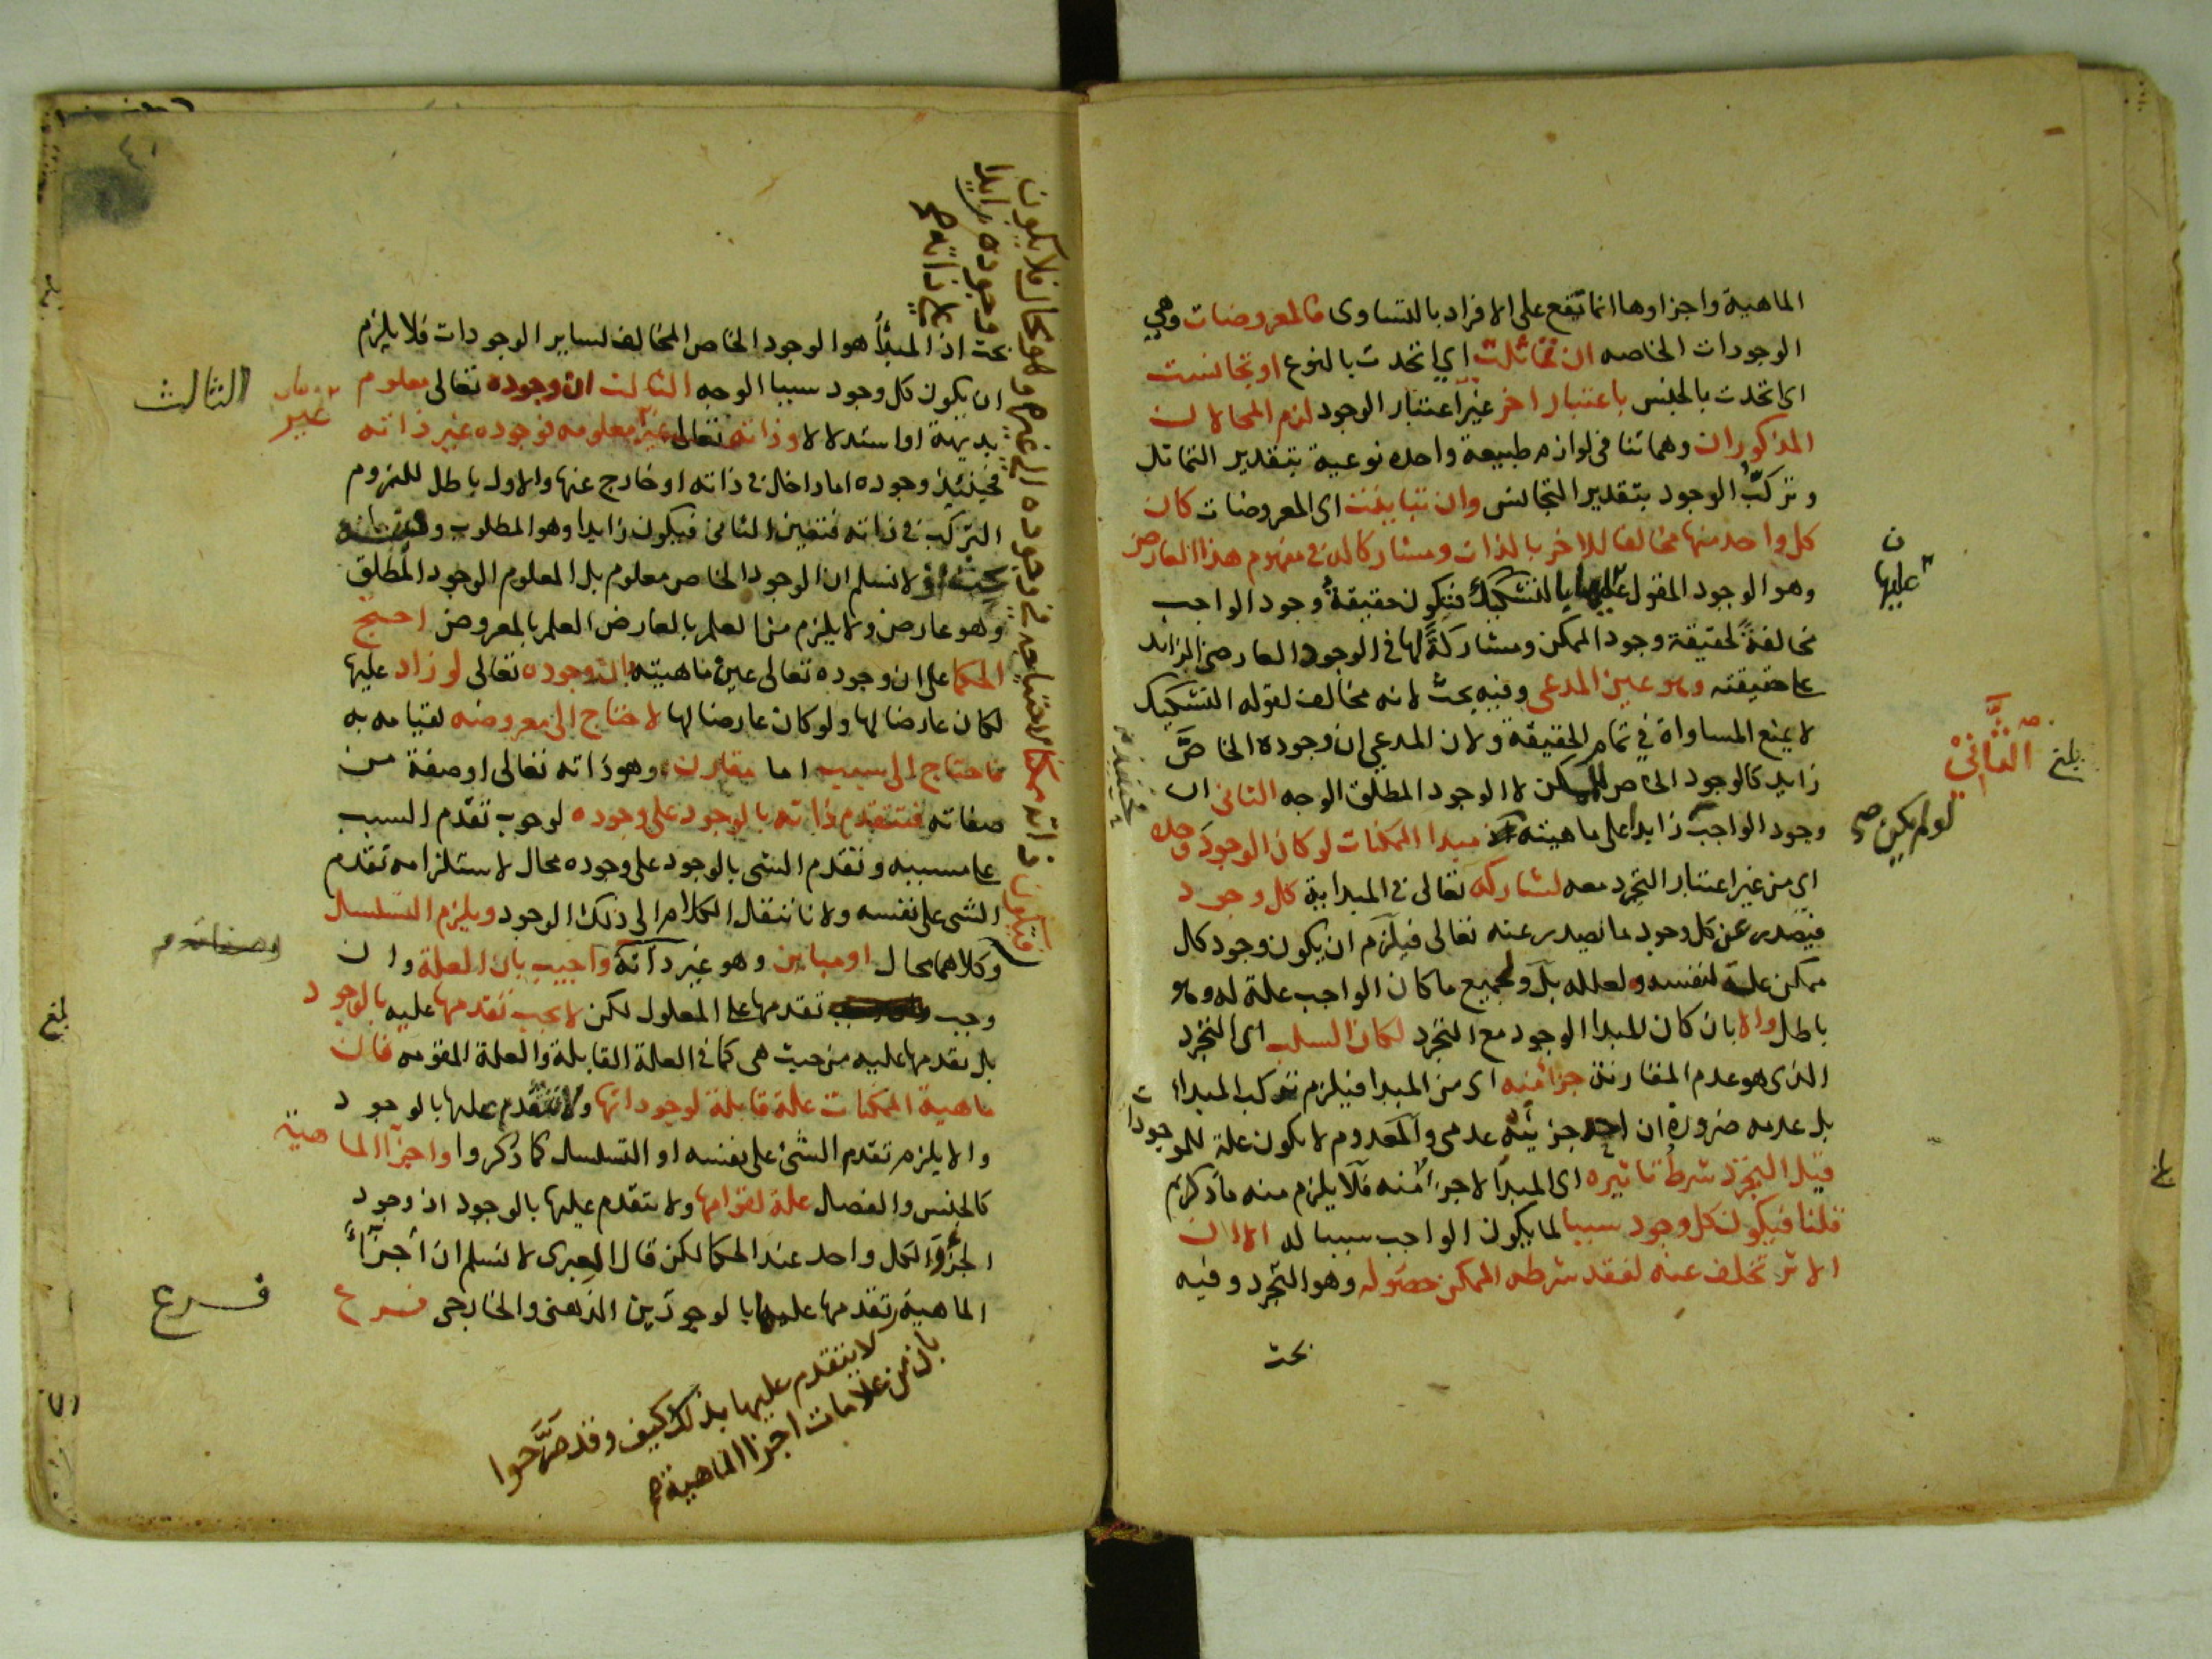 الماهية واجزاوها انما تقع على الافراد بالتساوى فالمعروضات وهي
الوجودات الخاصه ان تماثلت اي اتحدت بالنوع او تجانست
اى اتحدت بالجنس باعتبار اخر غير اعتبار الوجود لزم المحالان
المذكوران وهما تنافى لوازم طبيعة واحده نوعية بتقدير التماثل
وتركب الوجود بتقدير التجانس وان تباينت اى المعروضات كان
كل واحد منها مخالفا للاخر بالذات ومشاركا له في مفهوم هذا العارض
وهو الوجود المقول عليها بالتشكيك فتكون حقيقة وجود الواجب
مخالفة لحقيقة وجود الممكن ومشاركة لها في الوجود العارض الزايد
على حقيقته وهو عين المدعى وفيه بحث لانه مخالف لقوله التشكيك
لا يمنع المساواة في تمام الحقيقة ولان المدعي ان وجوده الخاص
زايد كالوجود الخاص للممكن لا الوجود المطلق الوجه الثانى ان
وجود الواجب زايدا على ماهيته مبدا الممكنات لو كان الوجود وحده
اى من غير اعتبار التجرد معه لشاركه تعالى في المبداية كل وجود
فيصدر عن كل وجود ما يصدر عنه تعالى فيلزم ان يكون وجود كل
ممكن علة لنفسه ولعلله بل ولجميع ما كان الواجب علة له وهو
باطل والا بان كان المبدا الوجود مع التجرد لكان السلب اى التجرد
الذى هو عدم المقارنة جزا منه اى من المبدا فيلزم تركب المبدا
بل عدمه ضرورة ان احد جزئيه عدمى والمعدوم لا يكون علة للموجودات
قيل التجرد شرط تاثيره اى المبدا لا جزا منه فلا يلزم منه ما ذكرتم
قلنا فيكون كل وجود سببا لما يكون الواجب سببا له الا ان
الاثر تخلف عنه لفقد شرطه الممكن حصوله وهو التجرد وفيه
بحث
عليها
الثاني
بلغ
لو لم يكن صح
بحث اذ المبدأ هو الوجود الخاص المخالف لساير الوجودات فلا يلزم
ان يكون كل وجود سببا الوجه الثالث ان وجوده تعالى معلوم
بديهة او استدلالا وذاته تعالى غير معلومه فوجوده غير ذاته
فحينئذ وجوده اما داخل في ذاته او خارج عنها والاول باطل للزوم
التركب في ذاته فتعين الثانى فيكون زايدا وهو المطلوب
بحث لا نسلم ان الوجود الخاص معلوم بل المعلوم الوجود المطلق
وهو عارض ولا يلزم من العلم بالعارض العلم بالمعروض احتج
الحكما على ان وجوده تعالى عين ماهيته بان وجوده تعالى لو زاد عليها
لكان عارضا لها ولو كان عارضا لها لاحتاج الى معروضه لقيامه به
فاحتاج الى سبب اما مقارن وهو ذاته تعالى او صفة من
صفاته فتتقدم ذاته بالوجود على وجوده لوجوب تقدم السبب
على مسببه وتقدم الشى بالوجود على وجوده محال لاستلزامه تقدم
الشى على نفسه ولانا ننقل الكلام الى ذلك الوجود ويلزم التسلسل
وكلاهما محال او مباين وهو غير ذاته واجيب بان العلة وان
وجب تقدمها على المعلول لكن لا يجب تقدمها عليه بالوجود
بل تقدمها عليه من حيث هى كما في العلة القابلة والعلة المقومه فان
ماهية الممكنات علة قابلة لوجوداتها ولا تتقدم عليها بالوجود
والا يلزم تقدم الشئ على نفسه او التسلسل كما ذكروا واجزا الماهية
كالجنس والفصل علة لقوامها ولا تتقدم عليها بالوجود اذ وجود
الجزؤ والكل واحد عند الحكما لكن قال العبرى لا نسلم ان أجزآءً
الماهية تقدمها عليها بالوجودين الذهنى والخارجى فرع
لا يتقدم عليها بذلك كيف وقد صرَّحوا
بان من علامات اجزا الماهية صح
فيكون ذاته ممكنا لاحتياجه في وجوده الى غيره وهو محال فلا يكون
وجوده زايدا
على ذاته صح
الثالث
غير
وصفاته
فرع
بلغ